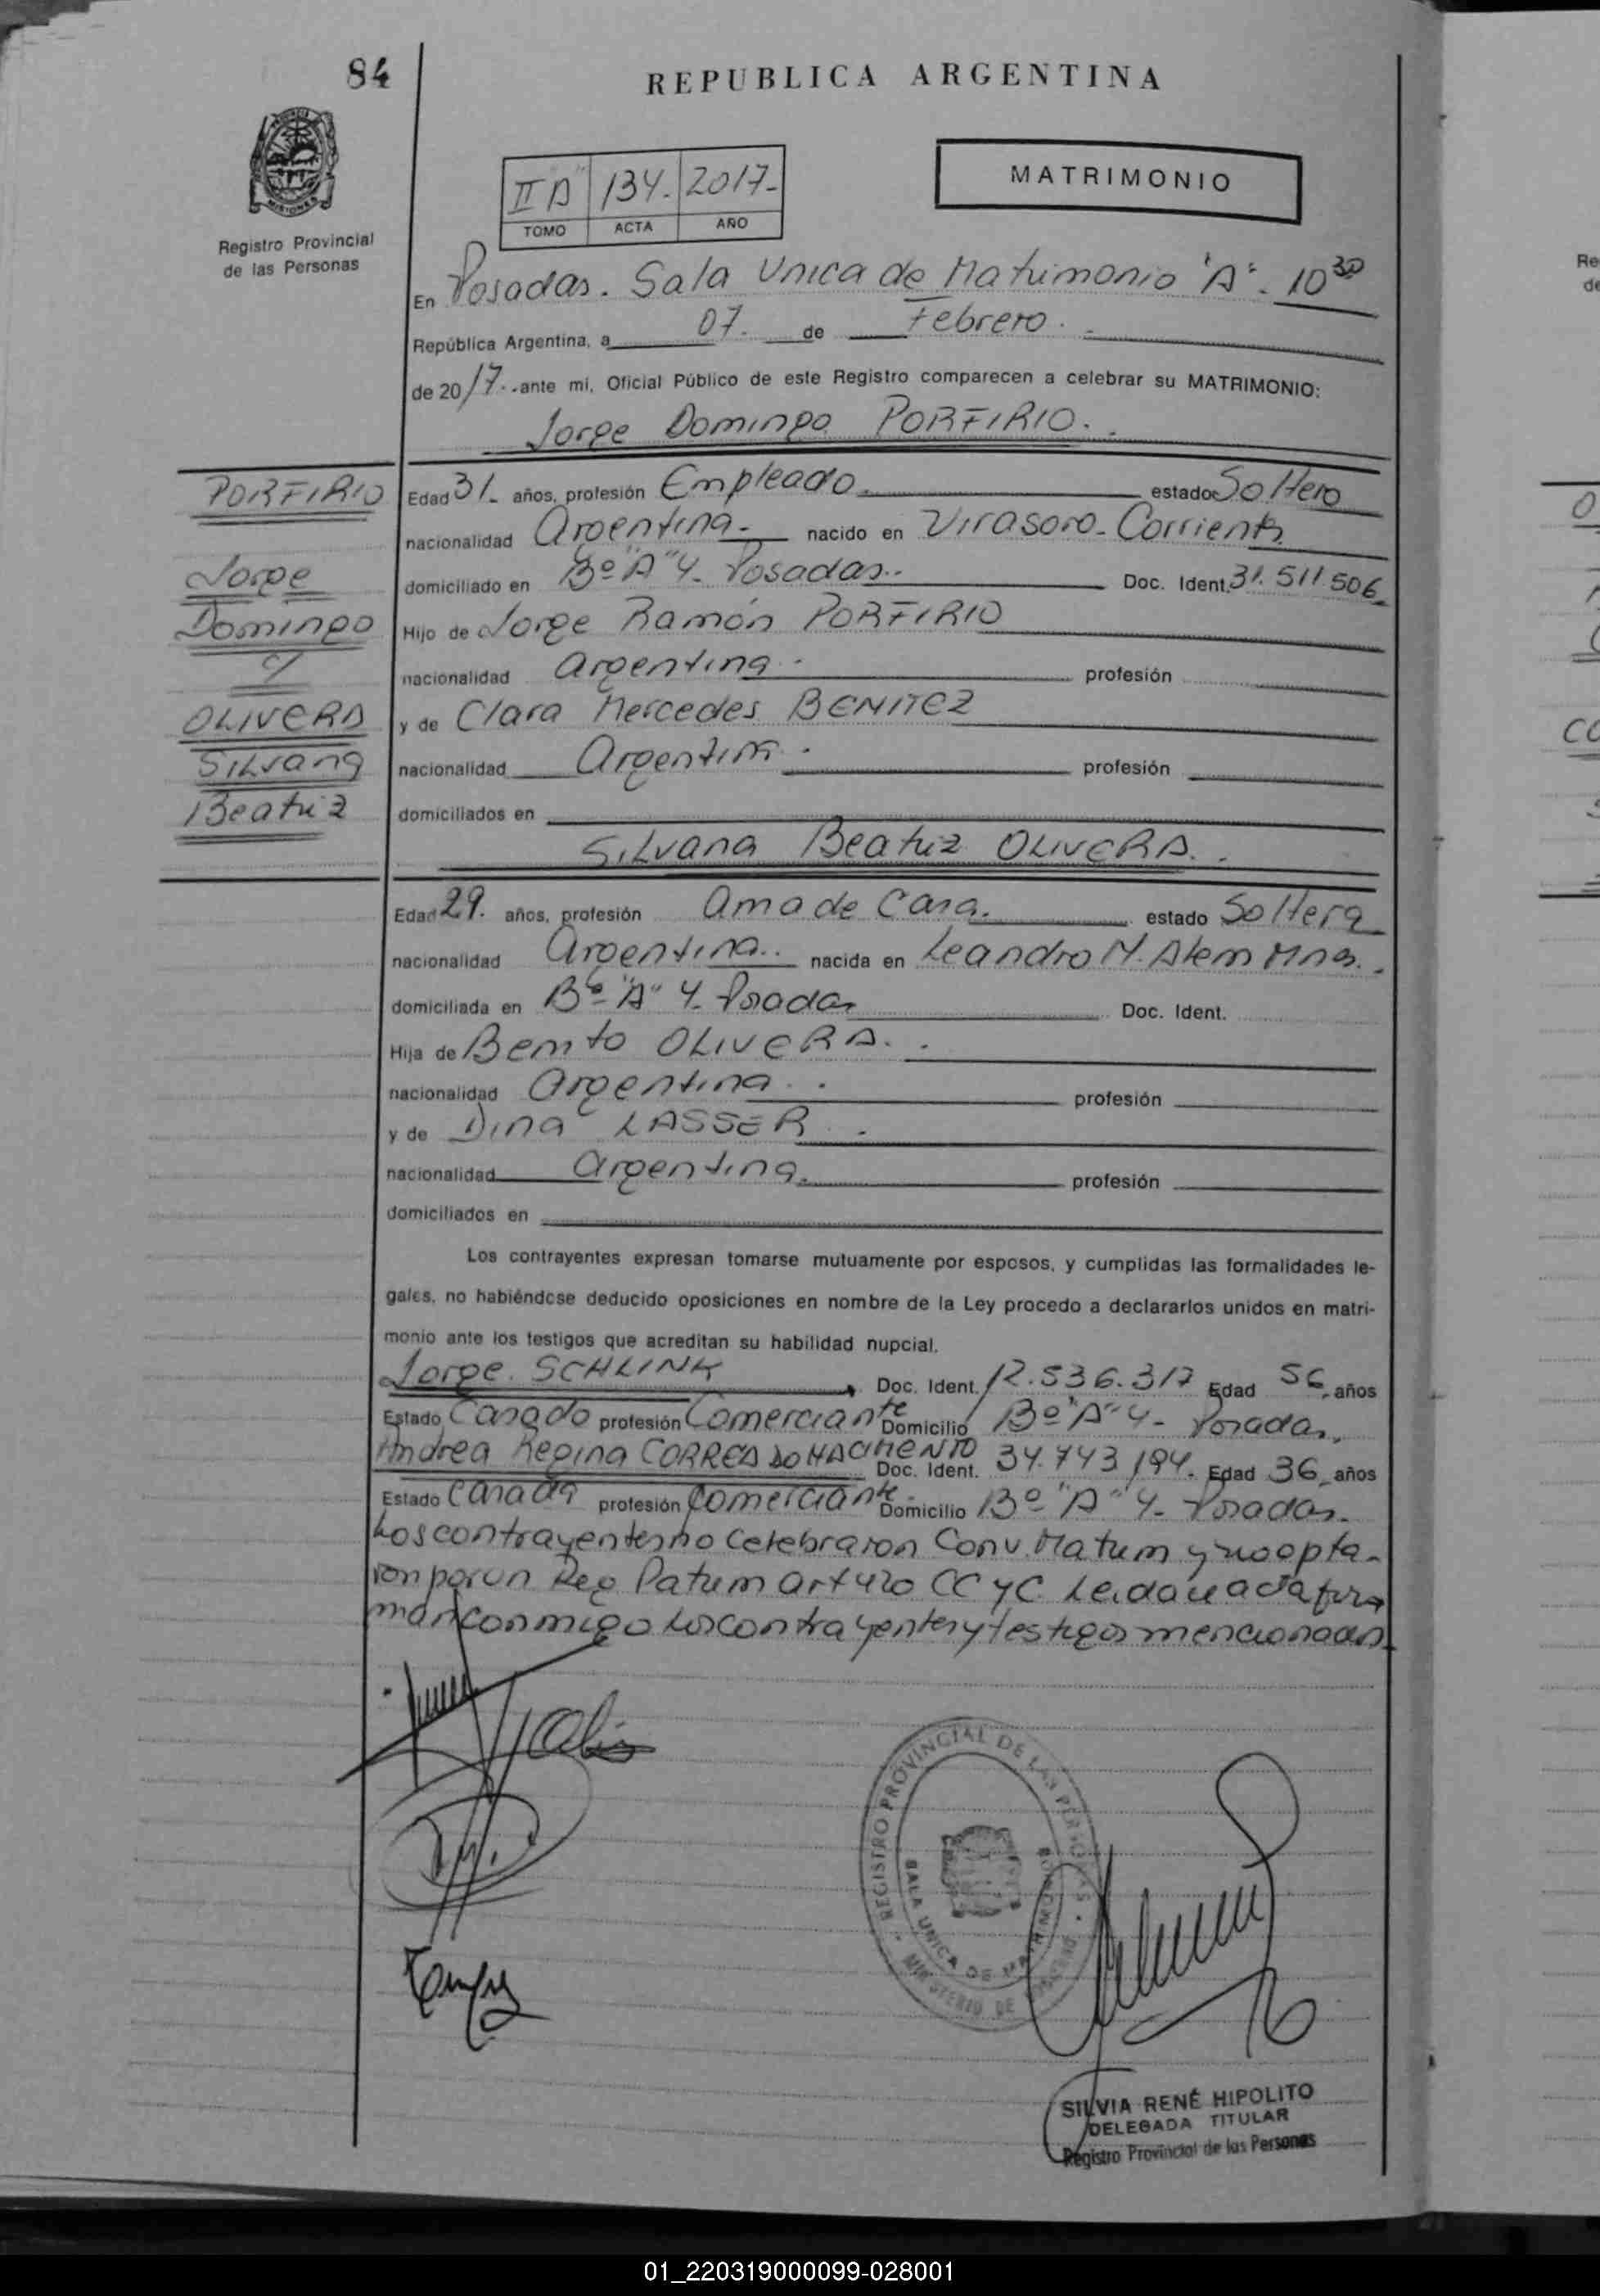 84
REPUBLICA ARGENTINA
MATRIMONIO
II "A" 134. 2017-
TOMO ACTA AÑO
Registro Provincial
de las Personas
En Posadas. Sala Unica de Matrimonio "A"- 10 30
República Argentina, a 07. de Febrero.
de 20 17. ante mi, Oficial Público de este Registro comparecen a celebrar su MATRIMONIO:
Jorge Domingo PORFIRIO.
PORFIRIO
Jorge
Domingo
y
OLIVERA
Silvana
Beatriz
Edad 31- años, profesión Empleado. estado Soltero
nacionalidad Argentina- nacido en Virasoro- Corrientes
domiciliado en Bº "A" 4- Posadas. Doc. Ident. 31.511.506
Hijo de Jorge Ramón PORFIRIO
nacionalidad Argentina. profesión
y de Clara Mercedes BENITEZ
nacionalidad Argentina. profesión
domiciliados en
Silvana Beatriz OLIVERA.
Edad 29. años, profesión Ama de Casa. estado Soltera
nacionalidad Argentina. nacida en Leandro N. Alem Mnes.
domiciliada en Bº "A" 4- Posadas Doc. Ident.
Hija de Benito OLIVERA.
nacionalidad Argentina. profesión
y de Dina LASSER.
nacionalidad Argentina. profesión
domiciliados en
Los contrayentes expresan tomarse mutuamente por esposos, y cumplidas las formalidades le-
gales, no habiéndose deducido oposiciones en nombre de la Ley procedo a declararlos unidos en matri-
monio ante los testigos que acreditan su habilidad nupcial.
Jorge. SCHLINK Doc. Ident. 12.536.317 Edad 56 años
Estado Casado profesión Comerciante Domicilio Bº "A" 4- Posadas.
Andrea Regina CORREA DO NACIMENTO Doc. Ident. 34.743.194. Edad 36 años
Estado Casada profesión Comerciante. Domicilio Bº "A" 4- Posadas.
Los contrayentes no celebraron Conv. Matrim y no opta-
ron por un Reg Patrim art 420 CC y C. Leida el acta fir
man conmigo los contrayentes y testigos mencionados.
REGISTRO PROVINCIAL DE LAS PERSONAS
SALA UNICA DE MATRIMONIOS
MINISTERIO DE GOBIERNO
SILVIA RENÉ HIPOLITO
DELEGADA TITULAR
Registro Provincial de las Personas
01_220319000099-028001